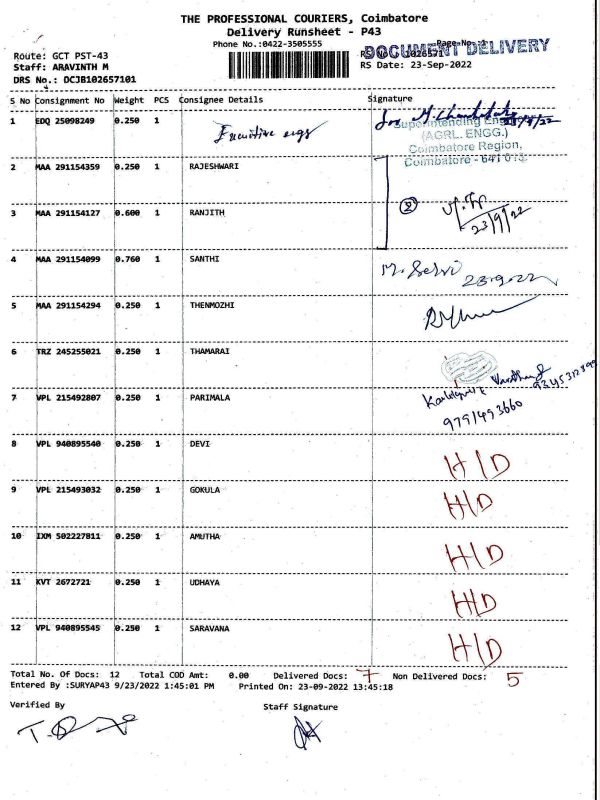 THE PROFESSIONAL COURIERS, Coimbatore
Delivery Runsheet - P43
Phone No.:0422-3505555
Page No.:1
DOCUMENT DELIVERY
Route: GCT PST-43
RS No.: 1026571
Staff: ARAVINTH M
RS Date: 23-Sep-2022
DRS No.: DCJB102657101
S No Consignment No Weight PCS Consignee Details Signature
1 EDQ 25098249 0.250 1
Superintending Engineer
(AGRL. ENGG.)
Coimbatore Region,
Coimbatore - 641 013.
2 MAA 291154359 0.250 1 RAJESHWARI
3 MAA 291154127 0.600 1 RANJITH ②
23/9/22
4 MAA 291154099 0.760 1 SANTHI M. Selvi
23.9.2022
5 MAA 291154294 0.250 1 THENMOZHI
6 TRZ 245255021 0.250 1 THAMARAI
7 VPL 215492807 0.250 1 PARIMALA
9791493660
8 VPL 940895540 0.250 1 DEVI H/D
9 VPL 215493032 0.250 1 GOKULA H/D
10 IXM 502227811 0.250 1 AMUTHA H/D
11 KVT 2672721 0.250 1 UDHAYA H/D
12 VPL 940895545 0.250 1 SARAVANA H/D
Total No. Of Docs: 12 Total COD Amt: 0.00 Delivered Docs: 7 Non Delivered Docs: 5
Entered By :SURYAP43 9/23/2022 1:45:01 PM Printed On: 23-09-2022 13:45:18
Verified By Staff Signature